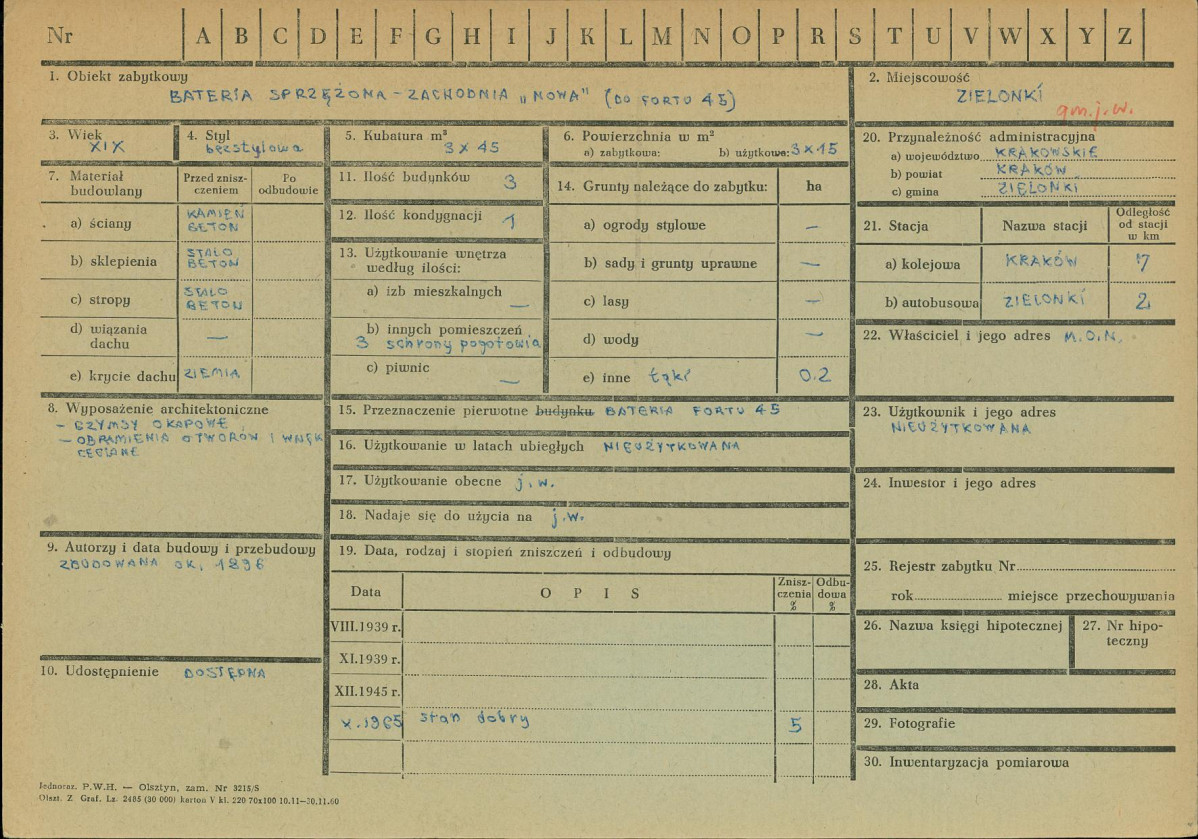 Nr A B C D E F G H I J K L M N O P R S T U V W X Y Z
1. Obiekt zabytkowy
BATERIA SPRZĘŻONA – ZACHODNIA „NOWA" (DO FORTU 45)
2. Miejscowość
ZIELONKI
gm. j. w.
3. Wiek
XIX
4. Styl
bezstylowa
5. Kubatura m³
3 x 45
6. Powierzchnia w m²
a) zabytkowa: b) użytkowa: 3 x 15
7. Materiał budowlany
Przed znisz-
czeniem
Po
odbudowie
a) ściany KAMIEŃ
BETON
b) sklepienia STALO
BETON
c) stropy STALO
BETON
d) wiązania
dachu —
e) krycie dachu ZIEMIA
8. Wyposażenie architektoniczne
– GZYMSY OKAPOWE,
– OBRAMIENIA OTWORÓW I WNĘK
CEGLANE
9. Autorzy i data budowy i przebudowy
ZBUDOWANA OK. 1896
10. Udostępnienie DOSTĘPNA
11. Ilość budynków 3
12. Ilość kondygnacji 1
13. Użytkowanie wnętrza
według ilości:
a) izb mieszkalnych
—
b) innych pomieszczeń
3 schrony pogotowia
c) piwnic
—
14. Grunty należące do zabytku: ha
a) ogrody stylowe —
b) sady i grunty uprawne —
c) lasy —
d) wody —
e) inne łąki 0.2
15. Przeznaczenie pierwotne budynku BATERIA FORTU 45
16. Użytkowanie w latach ubiegłych NIEUŻYTKOWANA
17. Użytkowanie obecne j. w.
18. Nadaje się do użycia na j. w.
19. Data, rodzaj i stopień zniszczeń i odbudowy
Data O P I S Znisz-
czenia
% Odbu-
dowa
%
VIII.1939 r.
XI.1939 r.
XII.1945 r.
X. 1965 stan dobry 5
20. Przynależność administracyjna
a) województwo KRAKOWSKIE
b) powiat KRAKÓW
c) gmina ZIELONKI
21. Stacja Nazwa stacji Odległość
od stacji
w km
a) kolejowa KRAKÓW 7
b) autobusowa ZIELONKI 2
22. Właściciel i jego adres M.O.N.
23. Użytkownik i jego adres
NIEUŻYTKOWANA
24. Inwestor i jego adres
25. Rejestr zabytku Nr
rok miejsce przechowywania
26. Nazwa księgi hipotecznej
27. Nr hipo-
teczny
28. Akta
29. Fotografie
30. Inwentaryzacja pomiarowa
Jednoraz. P.W.H. — Olsztyn, zam. Nr 3215/S
Olszt. Z. Graf. Lz. 2485 (30 000) karton V kl. 220 70x100 10.11—30.11.60